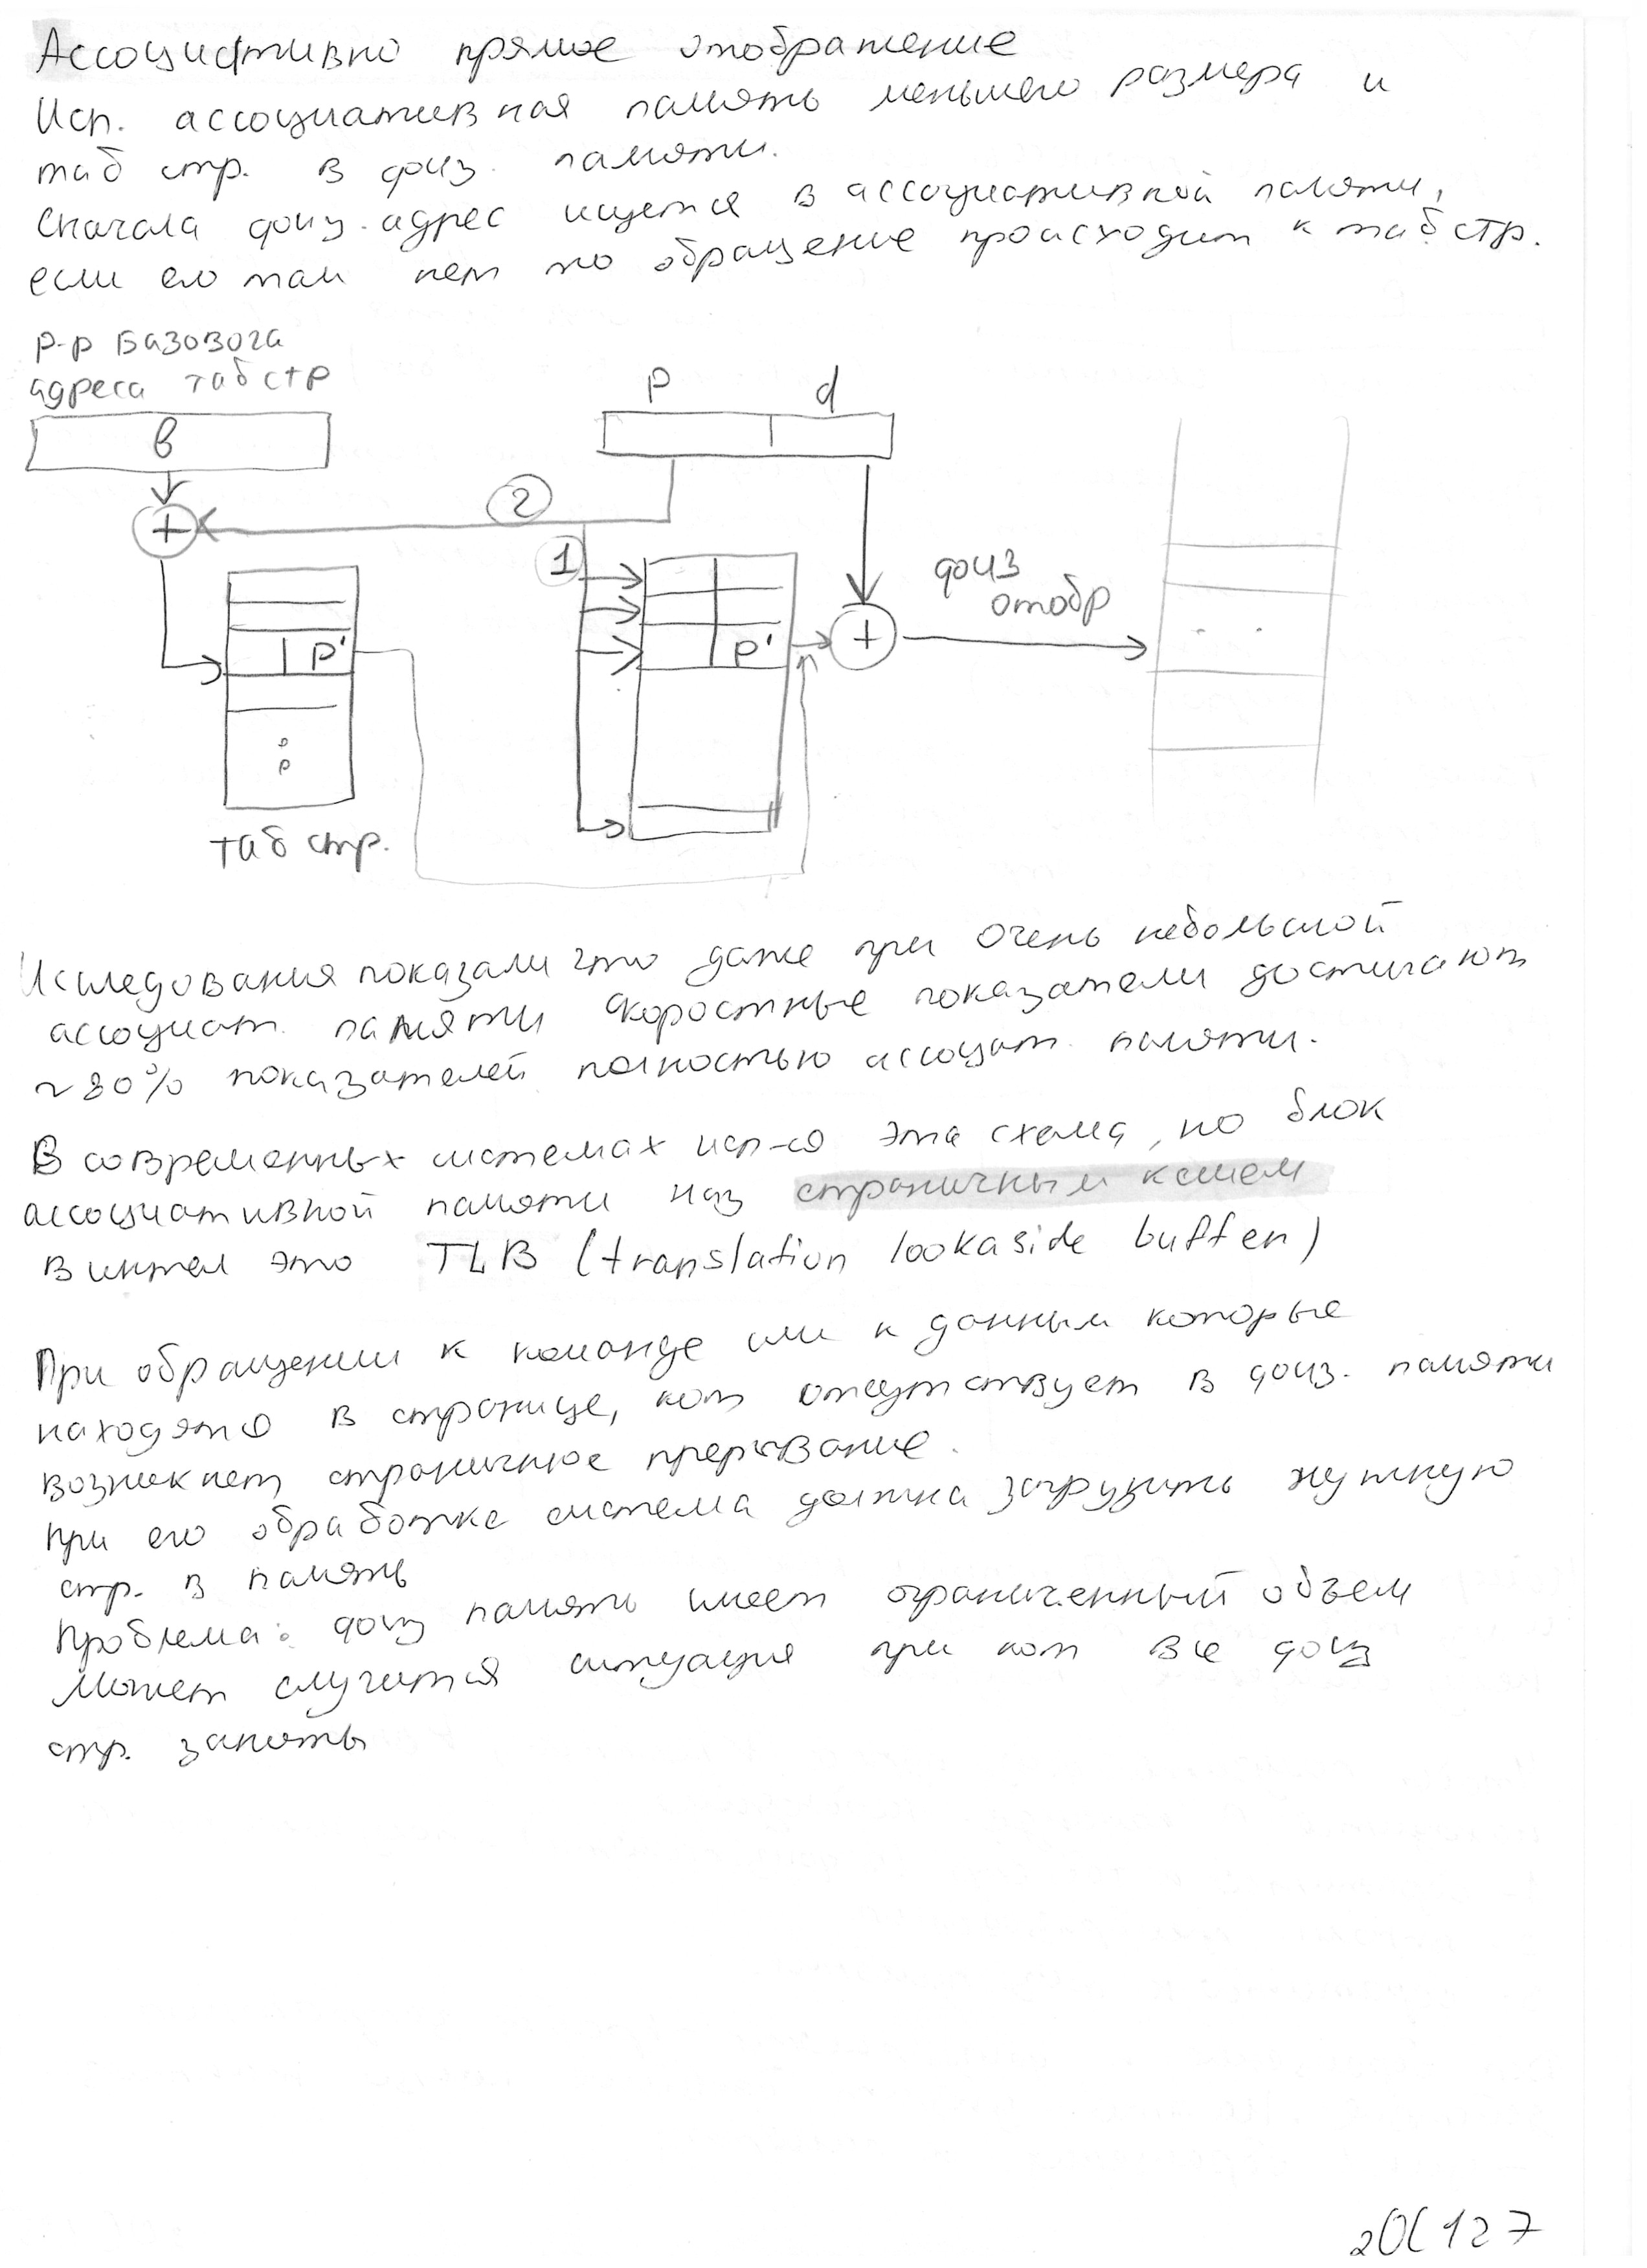 Ассоциативно прямое отображение
Исп. ассоциативная память меньшего размера и
таб стр. в физ. памяти.
Сначала физ. адрес ищется в ассоциативной памяти,
если его там нет то обращение происходит к таб стр.
р-р Базовога
адреса таб стр
P d
в
2
+
1
физ
отобр
P' P' +
таб стр.
Исследования показали что даже при очень небольшой
ассоциат. памяти скоростные показатели достигают
~ 80% показателей полностью ассоциат. памяти.
В современных системах исп-ся эта схема, но блок
ассоциативной памяти наз страничным кешем
В интел это TLB (translation lookaside buffer)
При обращении к команде или к данным которые
находятся в странице, кот отсутствует в физ. памяти
возникнет страничное прерывание.
При его обработке система должна загрузить нужную
стр. в память
Проблема: физ память имеет ограниченный объем
Может случится ситуация при кот все физ
стр. заняты
127